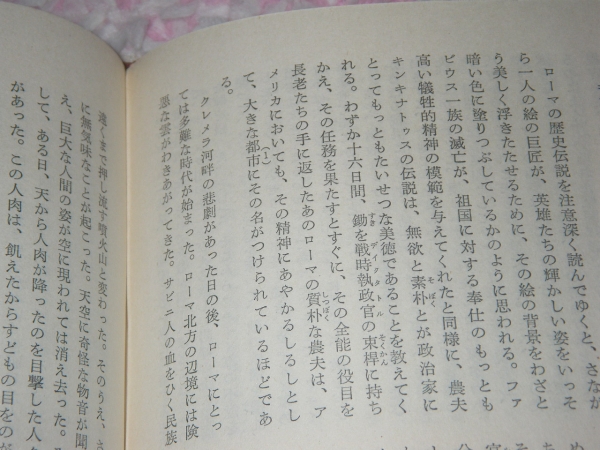 ローマの歴史伝説を注意深く読んでゆくと、さなが
ら一人の絵の巨匠が、英雄たちの輝かしい姿をいっそ
う美しく浮きたたせるために、その絵の背景をわざと
暗い色に塗りつぶしているかのように思われる。ファ
ビウス一族の滅亡が、祖国に対する奉仕のもっとも
高い犠牲的精神の模範を与えてくれたと同様に、農夫
キンキナトゥスの伝説は、無欲と素朴とが政治家に
そぼく
とってもっともたいせつな美徳であることを教えてく
れる。わずか十六日間、鋤を戦時執政官の束桿に持ち
すき ディクタトル そくかん
かえ、その任務を果たすとすぐに、その全能の役目を
長老たちの手に返したあのローマの質朴な農夫は、ア
しつぼく
メリカにおいても、その精神にあやかるしるしとし
て、大きな都市にその名がつけられているほどであ
(1)
る。
クレメラ河畔の悲劇があった日の後、ローマにとっ
ては多難な時代が始まった。ローマ北方の辺境には険
悪な雲がわきあがってきた。サビニ人の血をひく民族
遠くまで押し流す噴火山と変わった。そのうえ、さ
に無気味なことが起こった。天空に奇怪な物音が聞
え、巨大な人間の姿が空に現われては消え去った。
して、ある日、天から人肉が降ったのを目撃した人
があった。この人肉は、飢えたからすどもの目をのが